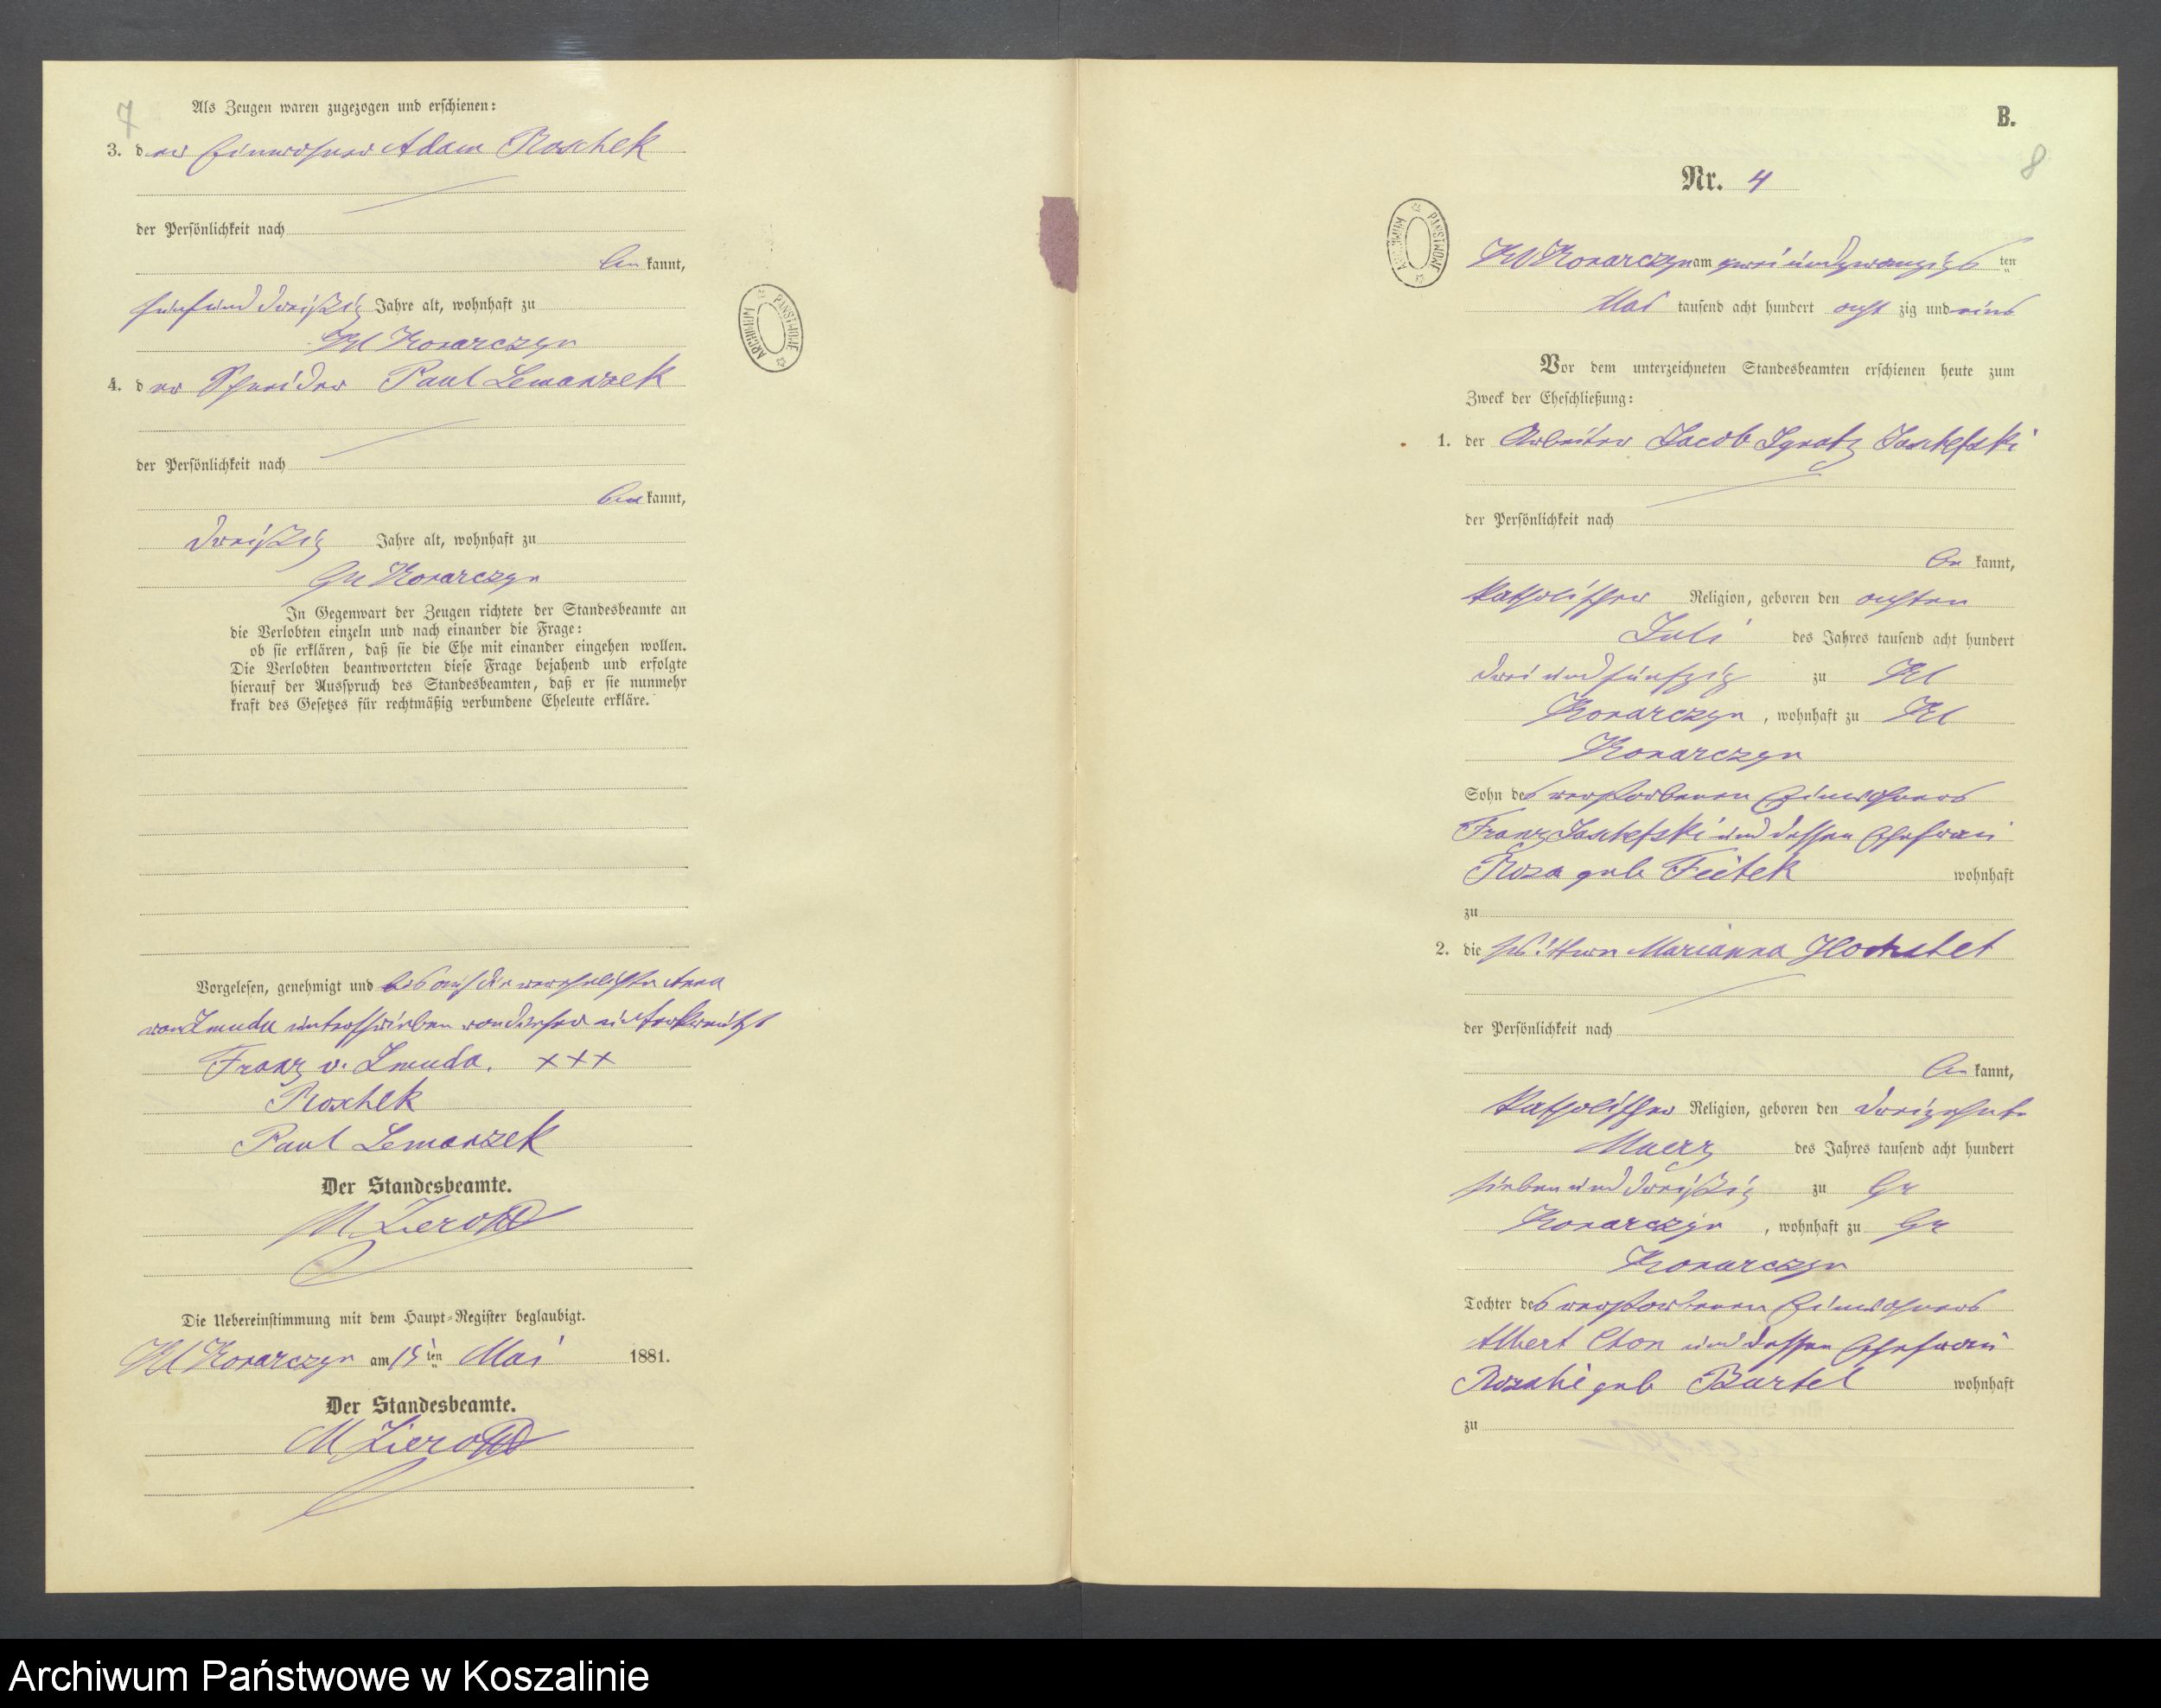 7
Als Zeugen waren zugezogen und erschienen:
3. der Einwohner Adam Roschek
der Persönlichkeit nach
be kannt,
fünfunddreißig Jahre alt, wohnhaft zu
Kl Konarczyn
4. der Schneider Paul Lemanzek
der Persönlichkeit nach
be kannt,
dreißig Jahre alt, wohnhaft zu
Gr Konarczyn
In Gegenwart der Zeugen richtete der Standesbeamte an
die Verlobten einzeln und nach einander die Frage:
ob sie erklären, daß sie die Ehe mit einander eingehen wollen.
Die Verlobten beantworteten diese Frage bejahend und erfolgte
hierauf der Ausspruch des Standesbeamten, daß er sie nunmehr
kraft des Gesetzes für rechtmäßig verbundene Eheleute erkläre.
Vorgelesen, genehmigt und bis auf die verehelichte Anna
von Zmuda unterschrieben von dieser unterkreuzt
Franz v. Zmuda. +++
Roschek
Paul Lemanzek
Der Standesbeamte.
Die Uebereinstimmung mit dem Haupt-Register beglaubigt.
Kl Konarczyn am 15 ten Mai 1881.
Der Standesbeamte.
B.
8
Nr. 4
ARCHIWUM PAŃSTWOWE
ARCHIWUM PAŃSTWOWE
Kl Konarczyn am zwei und zwanzigs ten
Mai tausend acht hundert acht zig und eins
Vor dem unterzeichneten Standesbeamten erschienen heute zum
Zweck der Eheschließung:
1. der Arbeiter Jacob Ignatz Jaschefski
der Persönlichkeit nach
be kannt,
katholischer Religion, geboren den achten
Juli des Jahres tausend acht hundert
drei und fünfzig zu Kl
Konarczyn, wohnhaft zu Kl
Konarczyn
Sohn des verstorbenen Einwohners
Franz Jaschefski und dessen Ehefrau
Roza geb Feitek wohnhaft
zu
2. die Wittwe Marianna
der Persönlichkeit nach
be kannt,
katholischer Religion, geboren den dreizehnte
Maerz des Jahres tausend acht hundert
sieben und dreißig zu Gr
Konarczyn, wohnhaft zu Gr
Konarczyn
Tochter des verstorbenen Einwohners
Albert Chon und dessen Ehefrau
Rozalie geb Bartel wohnhaft
zu
Archiwum Państwowe w Koszalinie